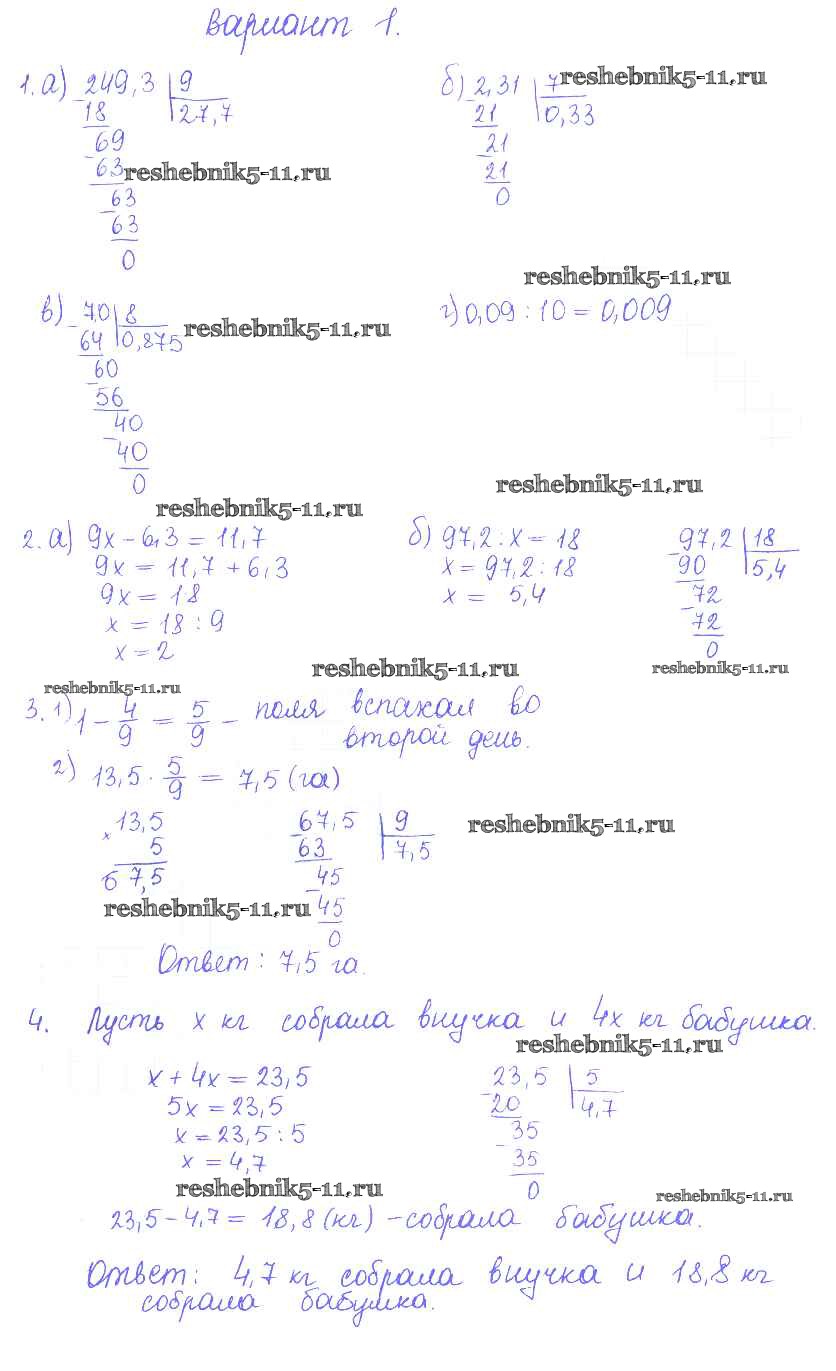 Вариант 1.
1. а) 249,3 | 9 б) 2,31 | 7 reshebnik5-11.ru
- 18 27,7 - 21 0,33
69 21
- 63 reshebnik5-11.ru - 21
63 0
- 63
0
reshebnik5-11.ru
в) 7,0 | 8 г) 0,09 : 10 = 0,009
- 64 0,875 reshebnik5-11.ru
60
- 56
40
- 40
0 reshebnik5-11.ru
reshebnik5-11.ru
2. а) 9x - 6,3 = 11,7 б) 97,2 : x = 18 97,2 | 18
9x = 11,7 + 6,3 x = 97,2 : 18 - 90 5,4
9x = 18 x = 5,4 72
x = 18 : 9 - 72
x = 2 0
reshebnik5-11.ru reshebnik5-11.ru
reshebnik5-11.ru
3. 1) 1 - 4/9 = 5/9 - поля вспахал во
второй день.
2) 13,5 · 5/9 = 7,5 (га)
× 13,5 67,5 | 9 reshebnik5-11.ru
5 - 63 7,5
67,5 45
reshebnik5-11.ru - 45
0
Ответ: 7,5 га.
4. Пусть x кг собрала внучка и 4x кг бабушка.
reshebnik5-11.ru
x + 4x = 23,5 23,5 | 5
5x = 23,5 - 20 4,7
x = 23,5 : 5 35
x = 4,7 - 35
reshebnik5-11.ru 0 reshebnik5-11.ru
23,5 - 4,7 = 18,8 (кг) - собрала бабушка.
Ответ: 4,7 кг собрала внучка и 18,8 кг
собрала бабушка.